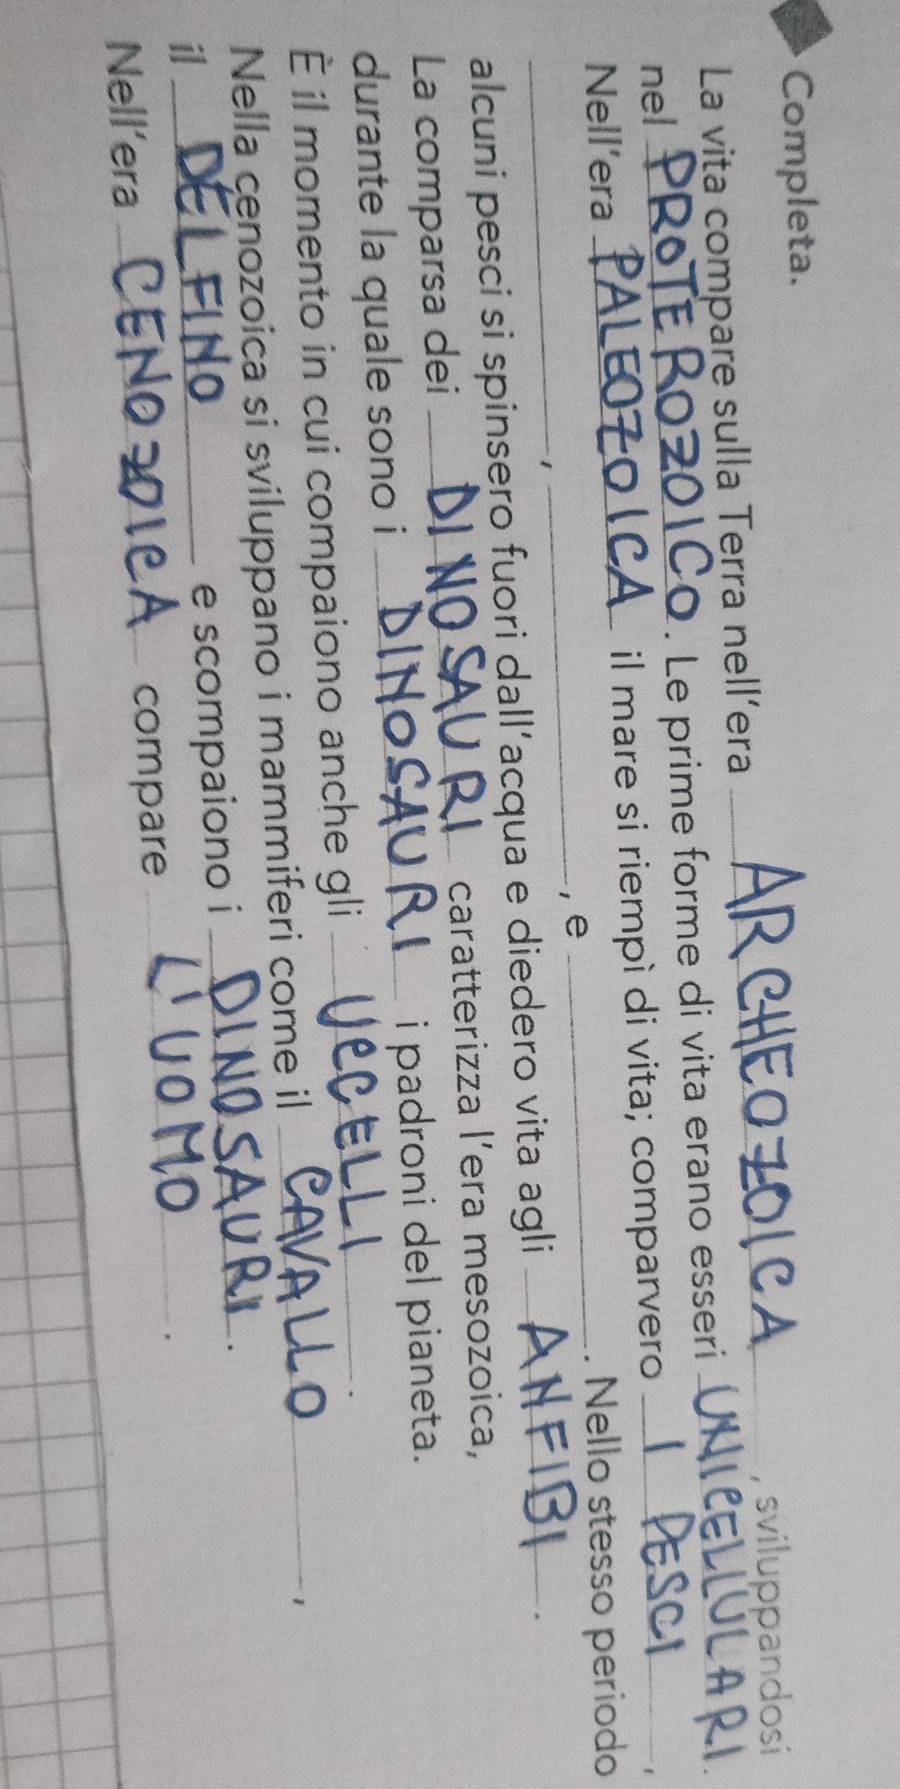 Completa.
La vita compare sulla Terra nell'era ARCHEOZOICA, sviluppandosi
nel PROTEROZOICO. Le prime forme di vita erano esseri UNICELLULARI.
Nell'era PALEOZOICA il mare si riempì di vita; comparvero I PESCI,
, , e . Nello stesso periodo
alcuni pesci si spinsero fuori dall'acqua e diedero vita agli ANFIBI.
La comparsa dei DINOSAURI caratterizza l'era mesozoica,
durante la quale sono i DINOSAURI i padroni del pianeta.
È il momento in cui compaiono anche gli UCCELLI.
Nella cenozoica si sviluppano i mammiferi come il CAVALLO,
il DELFINO e scompaiono i DINOSAURI.
Nell'era CENOZOICA compare L'UOMO.